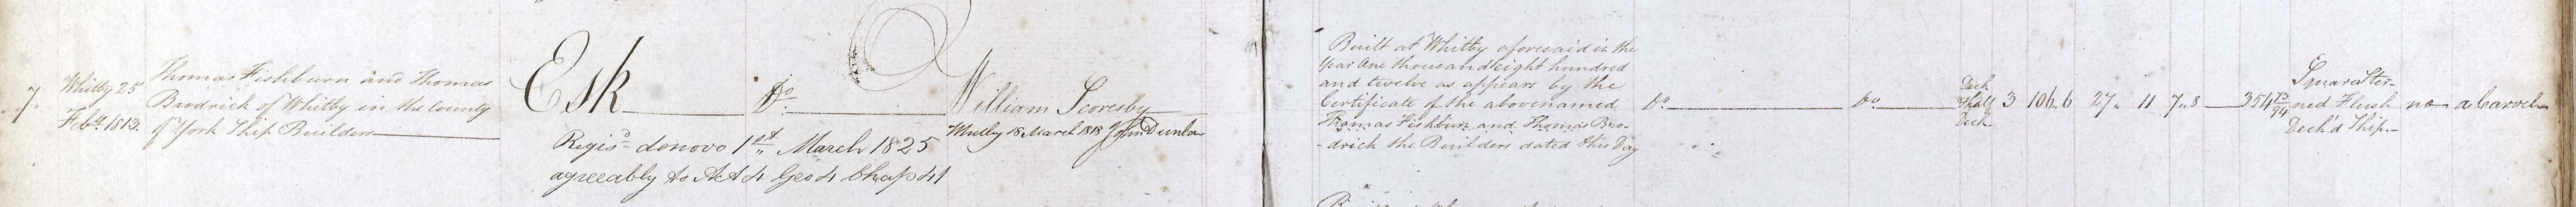 7.
Whitby 25
Feb.y 1813.
Thomas Fishburn and Thomas
Brodrick of Whitby in the County
of York Ship Builders
Esk
Do
William Scoresby
Whitby 18 March 1818 John Dunbar
Regisd denovo 1st March 1825
agreeably to Act 4 Geo 4 Chap 41
Built at Whitby aforesaid in the
Year One thousand eight hundred
and twelve as appears by the
Certificate of the abovenamed
Thomas Fishburn and Thomas Bro-
-drick the Builders dated this Day
Do
Do
Deck
& half
Deck
3
106.6
27.. 11
7..8
354 73/94
Square Ster-
ned Flush
Deck'd Ship.
no
a Carvel